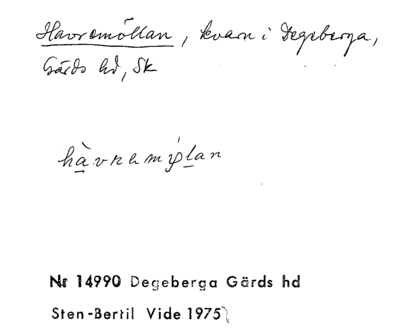 Havremöllan, kvarn i Degeberga,
Gärds hd, Sk
Nr 14990 Degeberga Gärds hd
Sten-Bertil Vide 1975